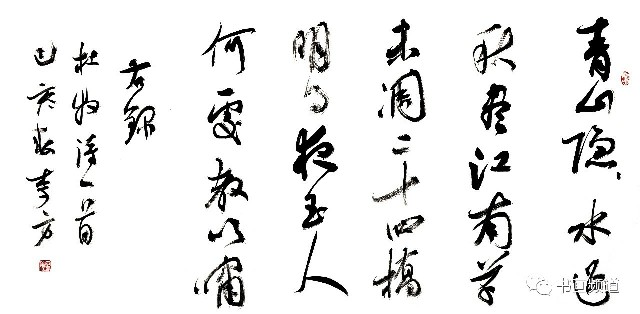 青山隐、水迢
秋尽江南草
未凋二十四橋
明月夜玉人
何處教吹嘯
右録
杜牧诗一首
己亥春李方
书画频道